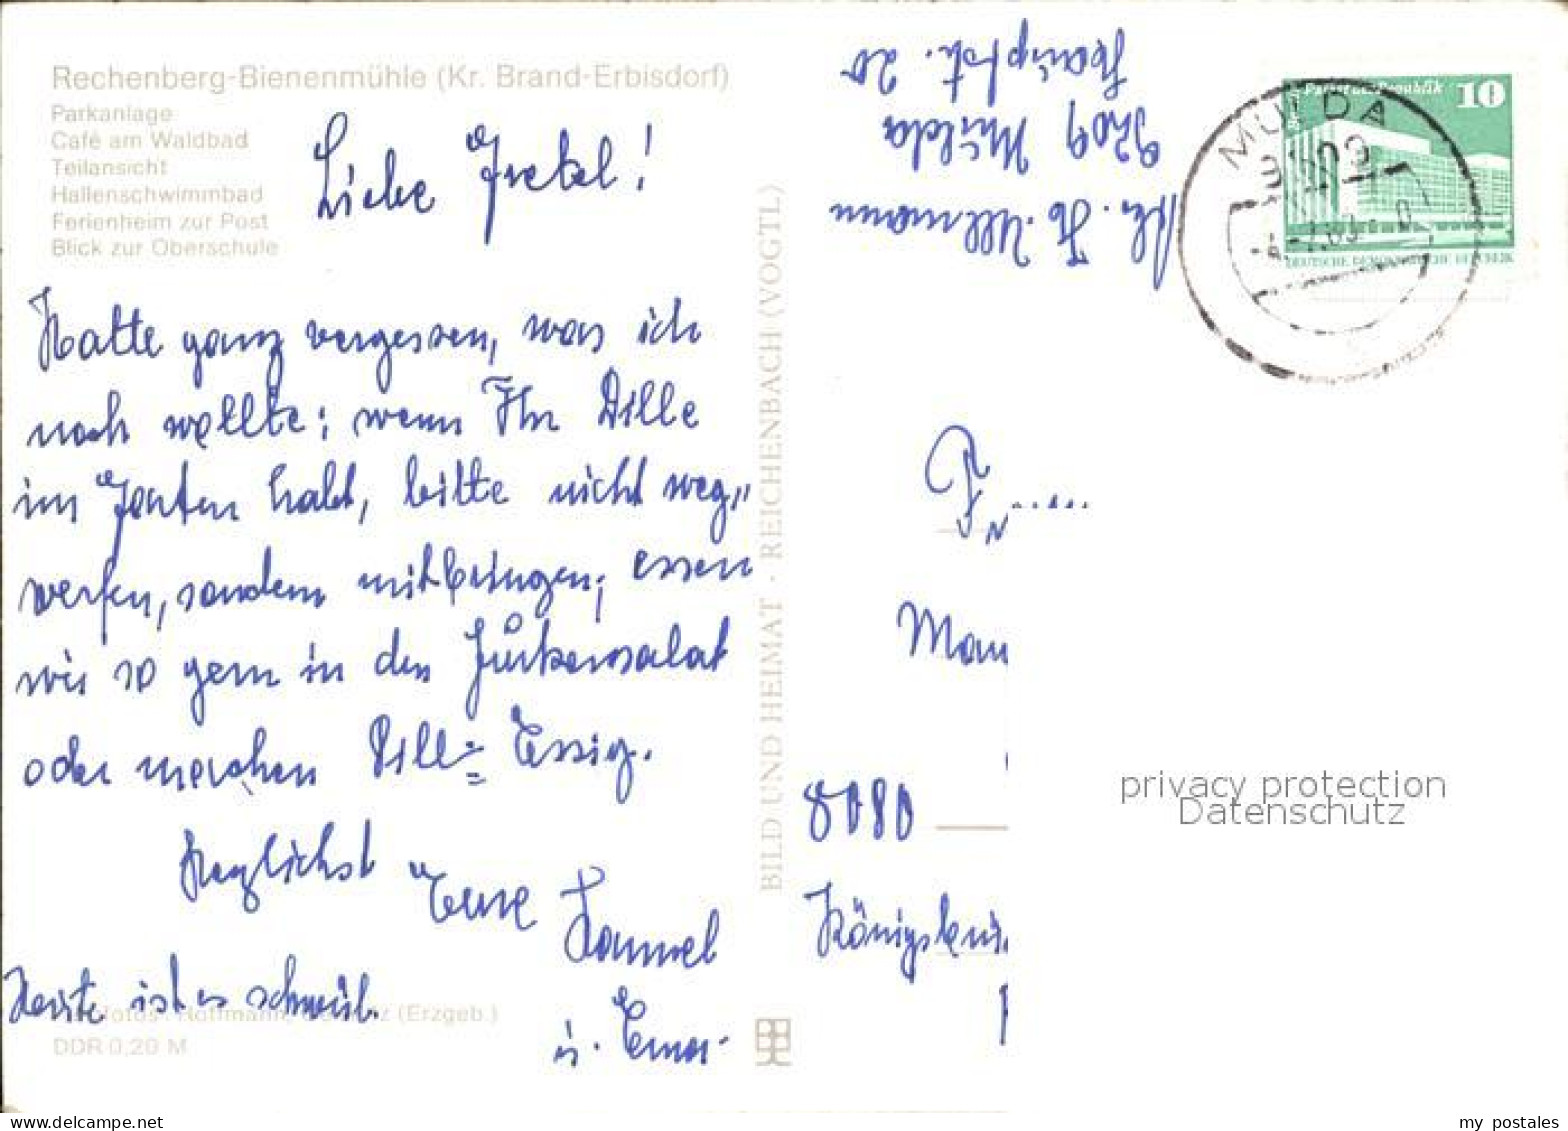 Rechenberg-Bienenmühle (Kr. Brand-Erbisdorf)
Parkanlage
Café am Waldbad
Teilansicht
Hallenschwimmbad
Ferienheim zur Post
Blick zur Oberschule
Liebe !
Hatte ganz vergessen, was ich
noch wollte: wenn Ihr Dille
im Garten habt, bitte nicht weg„
werfen, sondern mitbringen; essen
wir so gern in den Gurkensalat
oder machen Dill= Essig.
Herzlichst Eure Hannel
u. Erna.
Heute ist es schwül.
Hoffmann, (Erzgeb.)
DDR 0,20 M
BILD UND HEIMAT · REICHENBACH (VOGTL)
Ullmann
9209 Mulda
Hauptstr. 20
10
DEUTSCHE DEMOKRATISCHE REPUBLIK
MULDA
9209
8080
privacy protection
Datenschutz
my postales